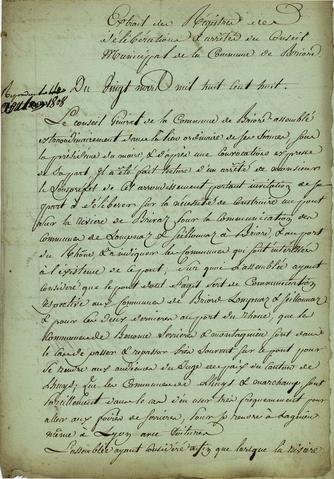 Extrait du Registre des
délibérations & arrêtés du Conseil
Municipal de la Commune de Briord
Du vingt mil huit cent huit.
1808
Le conseil général de la Commune de Briord assemblé
extraordinairement dans le lieu ordinaire de ses séances, sous
la présidence du maire, & d'après une convocation expresse
de sa part. Il a été fait lecture d'un arrêté de Monsieur
le Souspréfet de cet arrondissement portant invitation de sa
part à délibérer sur la nécessité de construire un pont
sur la rivière de pour la communication des
Communes de & à Briord, & au port
du Rhône, & indiquer les communes qui sont intéressées
à l'existence de ce pont, sur quoi l'assemblée ayant
considéré que le pont dont s'agit sert de Communication
aux Communes de Briord
& pour ces deux dernières au port du rhône, que les
Communes de Serrières & montagnieu sont dans
le cas de passer & repasser très souvent sur le pont pour
se rendre aux audiences du Juge de paix du Canton de
que les Communes de & marchamp sont
également dans le cas d'en user très fréquemment pour
aller aux foires de Serrières, pour se rendre à Lagnieu
même à Lyon avec voitures
L'assemblée ayant considéré que lorsque la rivière